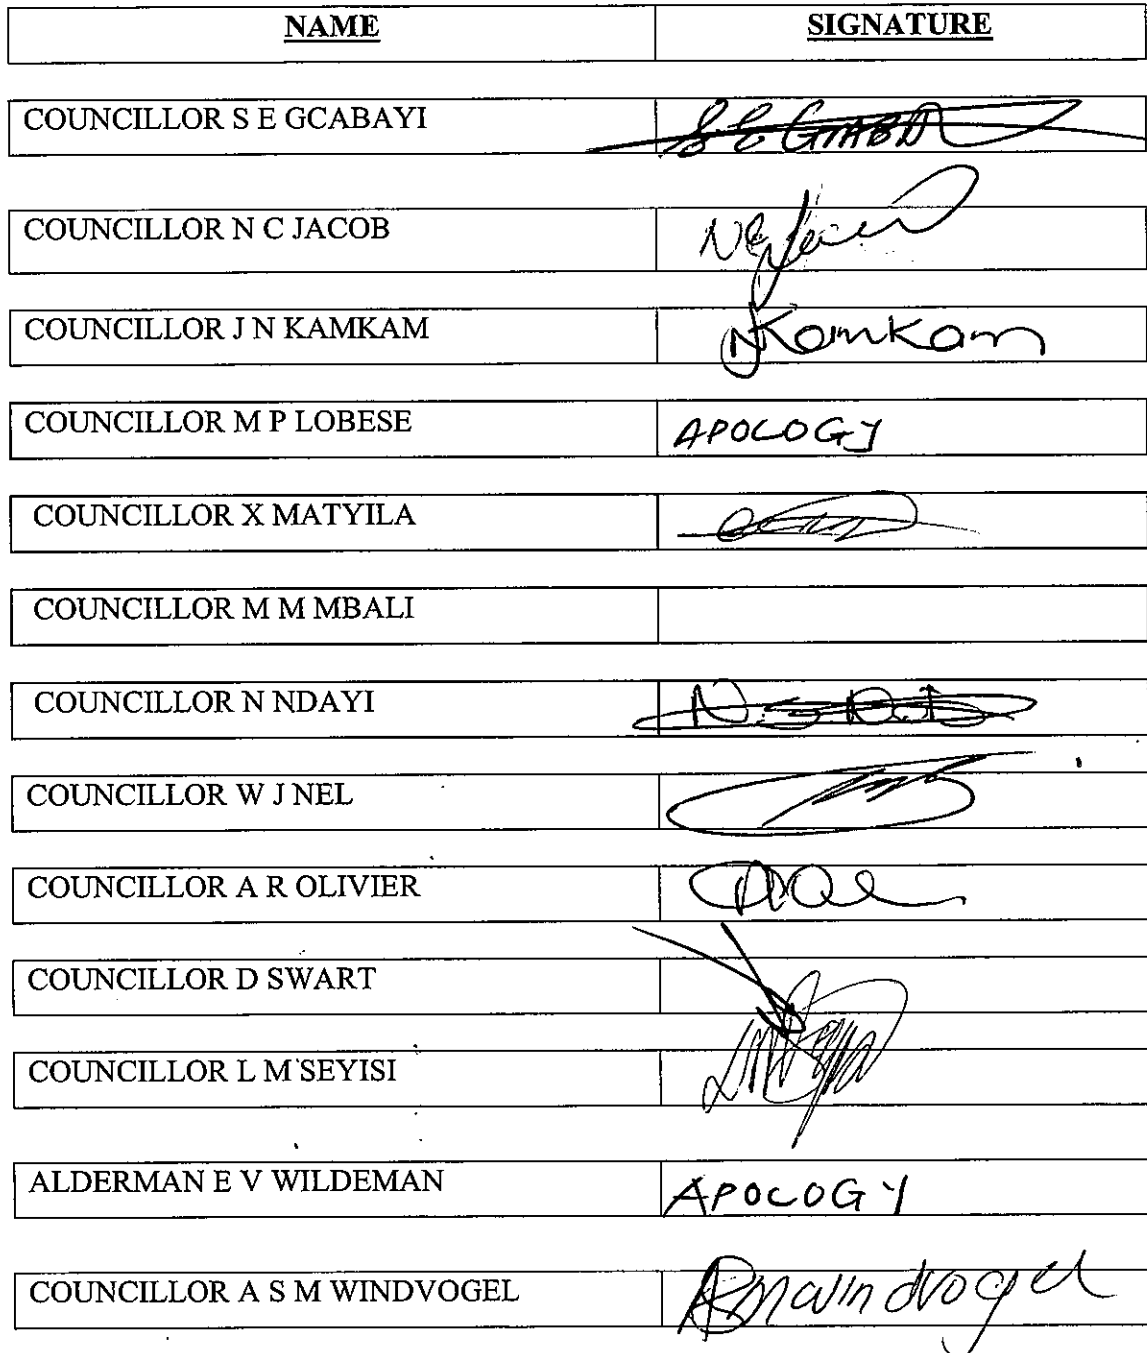 NAME SIGNATURE
COUNCILLOR S E GCABAYI
COUNCILLOR N C JACOB
COUNCILLOR J N KAMKAM NJKamkam
COUNCILLOR M P LOBESE APOLOGY
COUNCILLOR X MATYILA
COUNCILLOR M M MBALI
COUNCILLOR N NDAYI
COUNCILLOR W J NEL
COUNCILLOR A R OLIVIER
COUNCILLOR D SWART
COUNCILLOR L M SEYISI
ALDERMAN E V WILDEMAN APOLOGY
COUNCILLOR A S M WINDVOGEL ASMWindvogel